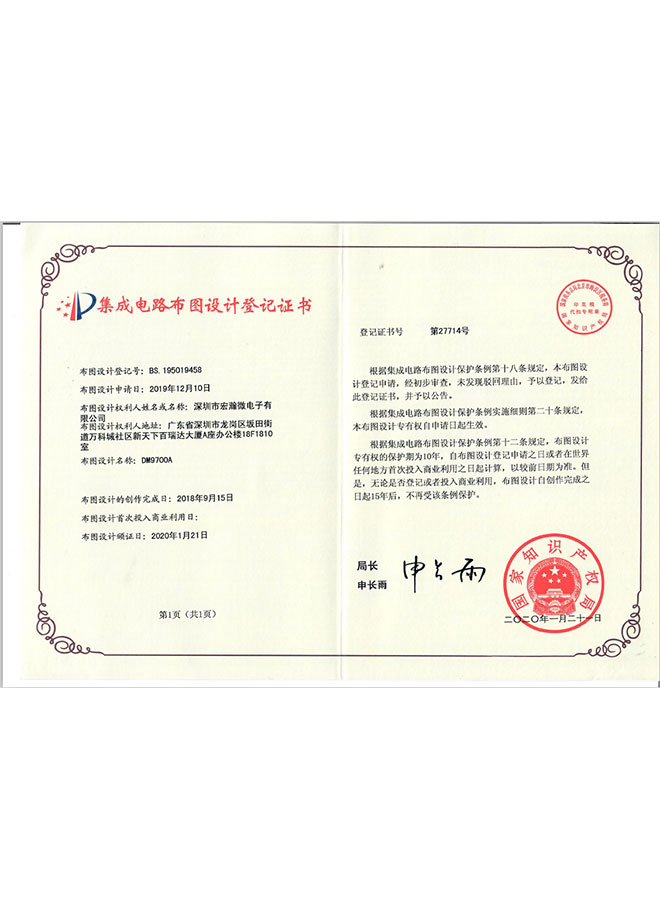 集成电路布图设计登记证书
布图设计登记号：BS.195019458
布图设计申请日：2019年12月10日
布图设计权利人姓名或名称：深圳市宏瀚微电子有
限公司
布图设计权利人地址：广东省深圳市龙岗区坂田街
道万科城社区新天下百瑞达大厦A座办公楼18F1810
室
布图设计名称：DM9700A
布图设计的创作完成日：2018年9月15日
布图设计首次投入商业利用日：
布图设计颁证日：2020年1月21日
第1页（共1页）
登记证书号 第27714号
根据集成电路布图设计保护条例第十八条规定，本布图设
计登记申请，经初步审查，未发现驳回理由，予以登记，发给
此登记证书，并予以公告。
根据集成电路布图设计保护条例实施细则第二十条规定，
本布图设计专有权自申请日起生效。
根据集成电路布图设计保护条例第十二条规定，布图设计
专有权的保护期为10年，自布图设计登记申请之日或者在世界
任何地方首次投入商业利用之日起计算，以较前日期为准。但
是，无论是否登记或者投入商业利用，布图设计自创作完成之
日起15年后，不再受该条例保护。
局长
申长雨
申长雨
国家知识产权局
二〇二〇年一月二十一日